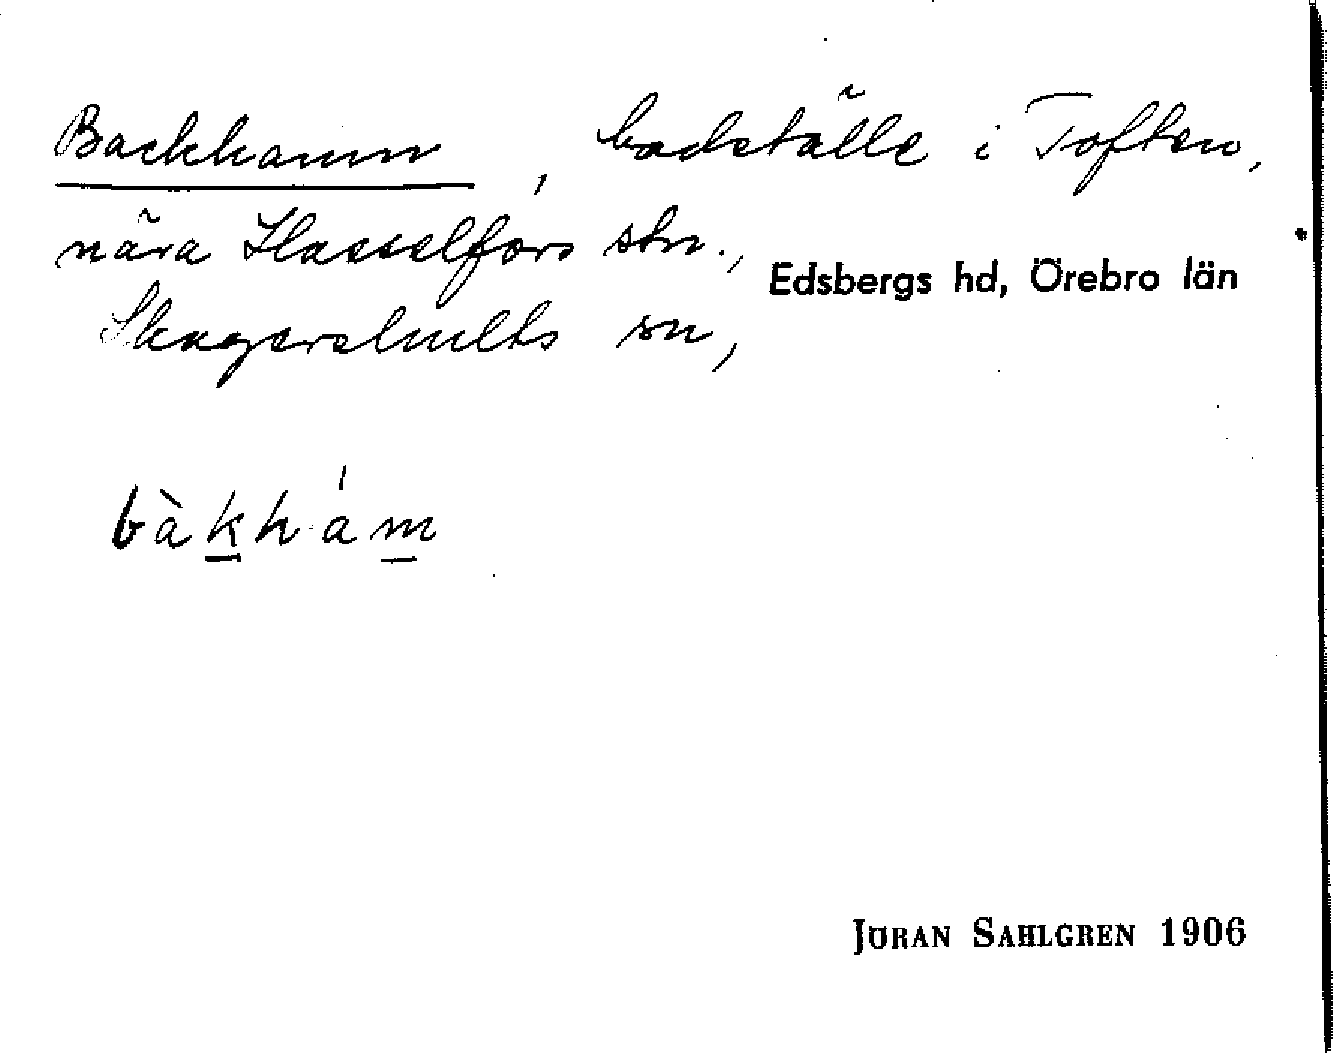 Backhamn, badställe i Toften,
nära Hasselfors stn.,
Edsbergs hd, Örebro län
Skagershults sn,
bàkhám
JÖRAN SAHLGREN 1906